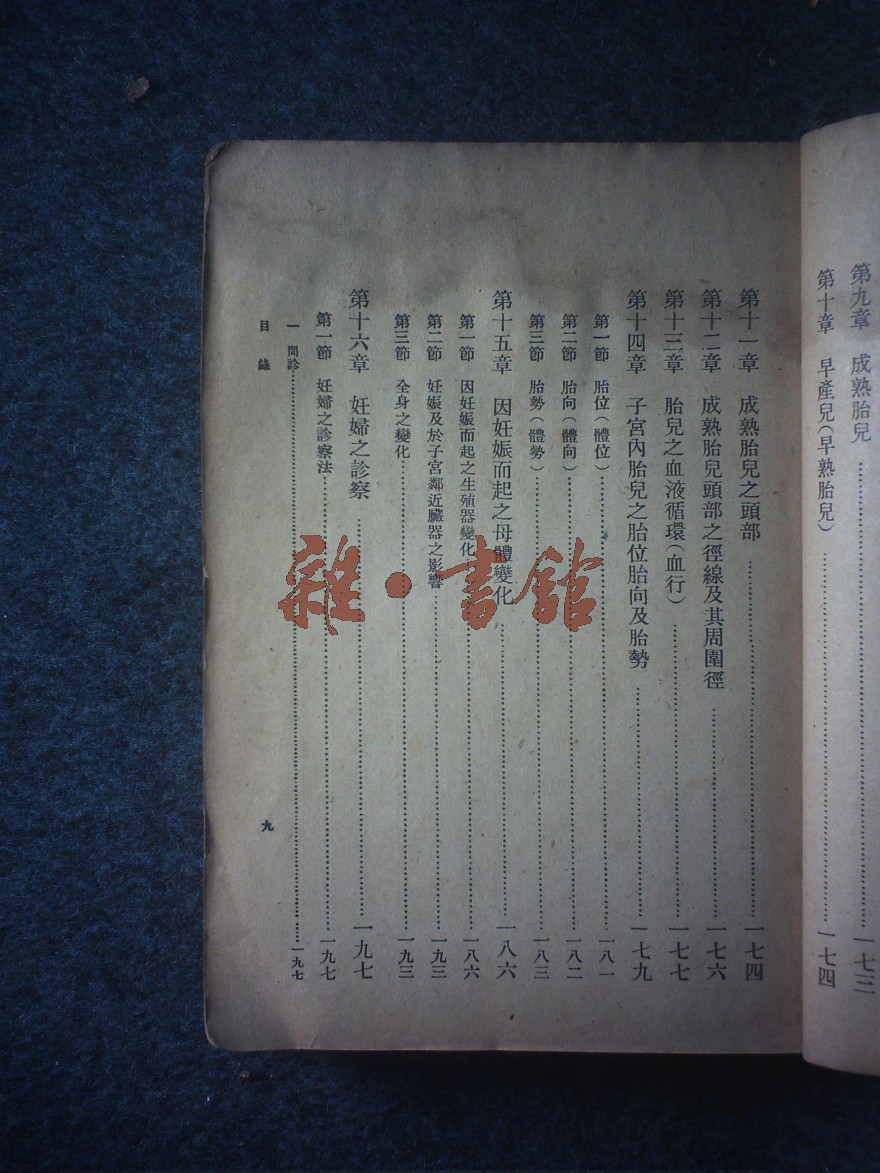 第九章　成熟胎兒……一七三
第十章　早產兒（早熟胎兒）……一七四
第十一章　成熟胎兒之頭部……一七四
第十二章　成熟胎兒頭部之徑線及其周圍徑……一七六
第十三章　胎兒之血液循環（血行）……一七七
第十四章　子宮內胎兒之胎位胎向及胎勢……一七九
第一節　胎位（體位）……一八一
第二節　胎向（體向）……一八二
第三節　胎勢（體勢）……一八三
第十五章　因妊娠而起之母體變化……一八六
第一節　因妊娠而起之生殖器變化……一八六
第二節　妊娠及於子宮鄰近臟器之影響……一九三
第三節　全身之變化……一九三
第十六章　妊婦之診察……一九七
第一節　妊婦之診察法……一九七
一　問診……一九七
目錄
九
雜·書館